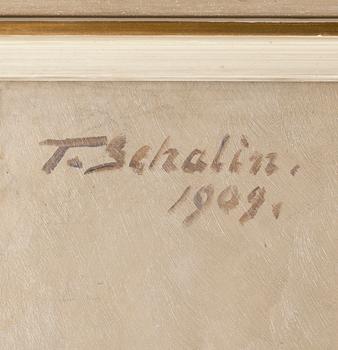 T. Schalin.
1909.